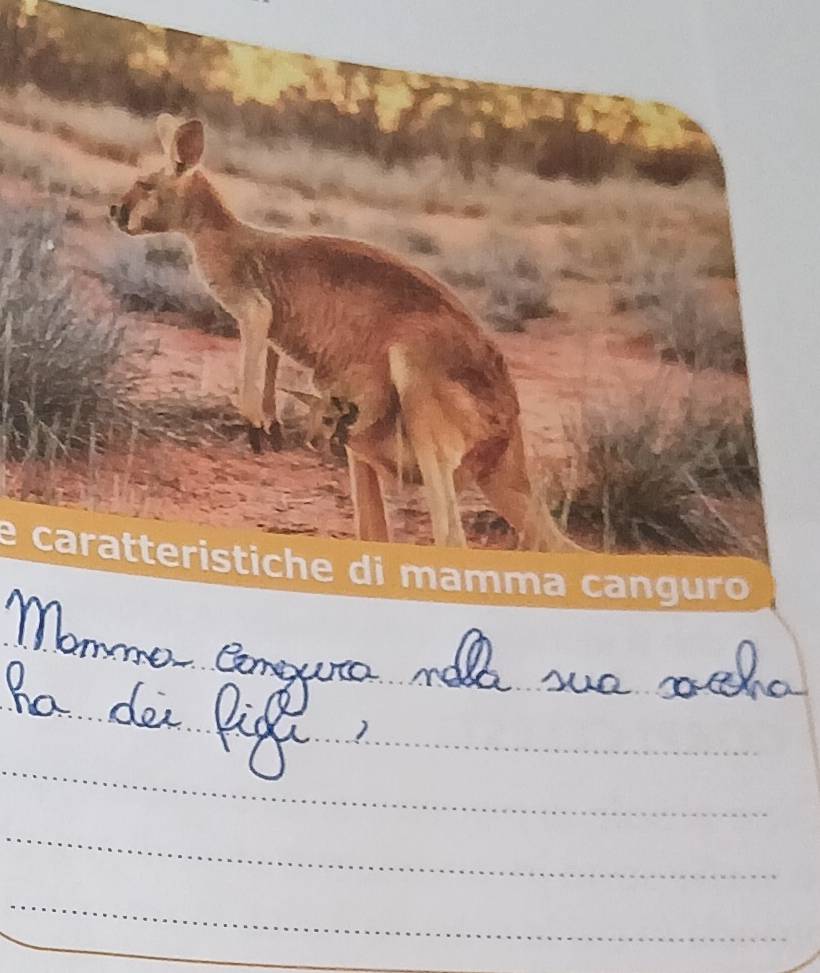 e caratteristiche di mamma canguro
Mamma cangura nella sua saccha
ha dei figli,